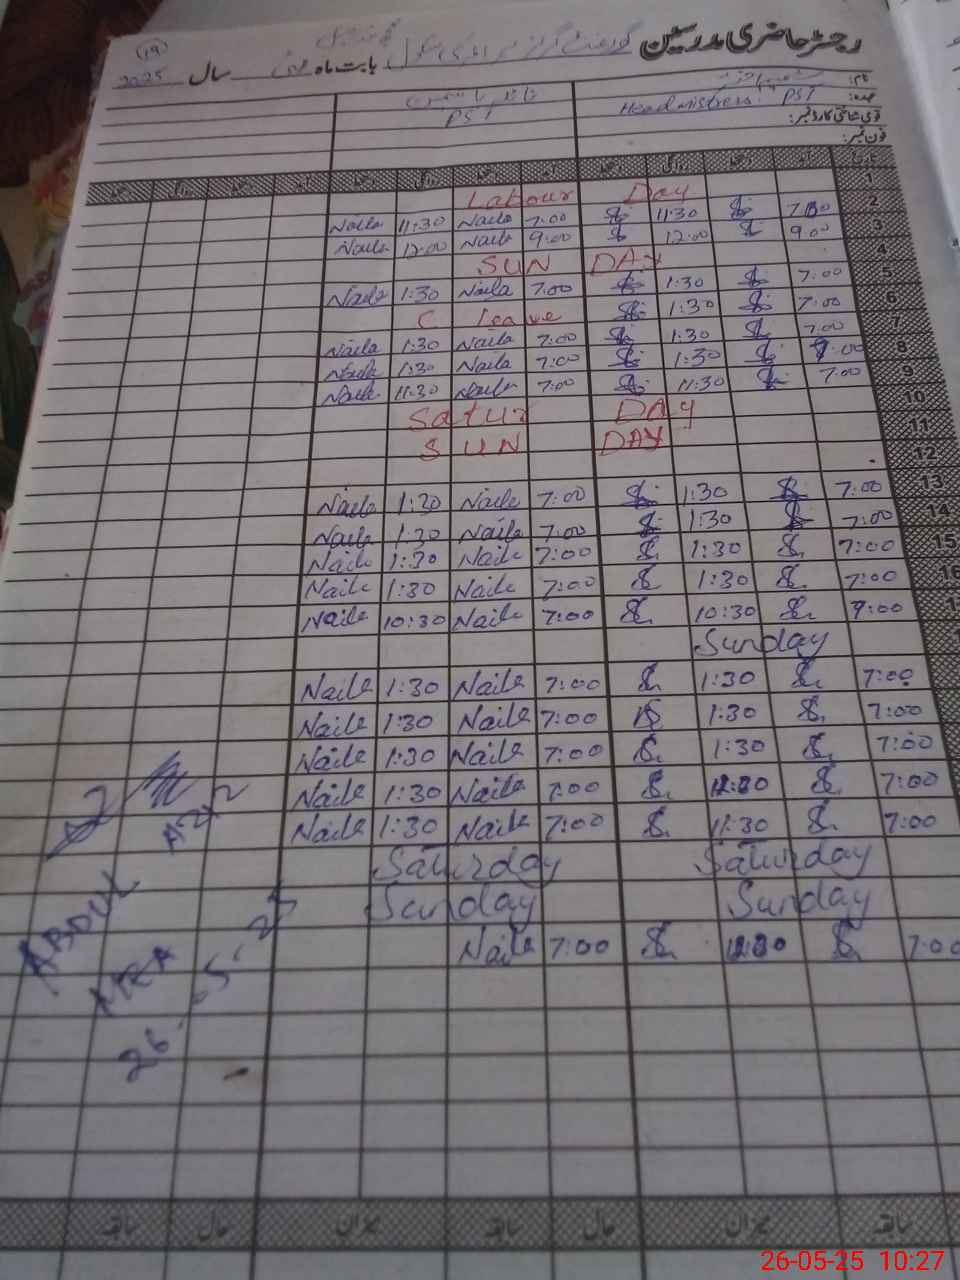 رجسٹر حاضری مدرسین گورنمنٹ گرلز پرائمری سکول
بابت ماہ مئی سال 2025 (19)
نام:
عہدہ: Headmistress PST PST
قومی شناختی کارڈ نمبر:
فون نمبر:
تاریخ آمد دستخط روانگی دستخط آمد دستخط روانگی دستخط آمد دستخط روانگی دستخط
Labour Day 1
Naila 11:30 Naila 7:00 11:30 7:00 2
Naila 12:00 Naila 9:00 12:00 9:00 3
SUN DAY 4
Naila 1:30 Naila 7:00 1:30 7:00 5
C leave 1:30 7:00 6
Naila 1:30 Naila 7:00 1:30 7:00 7
Naila 1:30 Naila 7:00 1:30 7:00 8
Naila 11:30 Naila 7:00 11:30 7:00 9
Satur DAY 10
SUN DAY 11
12
Naila 1:30 Naila 7:00 1:30 7:00 13
Naila 1:30 Naila 7:00 1:30 7:00 14
Naila 1:30 Naila 7:00 1:30 7:00 15
Naila 1:30 Naila 7:00 1:30 7:00 16
Naila 10:30 Naila 7:00 10:30 9:00
Sunday
Naila 1:30 Naila 7:00 1:30 7:00
Naila 1:30 Naila 7:00 1:30 7:00
Naila 1:30 Naila 7:00 1:30 7:00
Naila 1:30 Naila 7:00 7:00
Naila 1:30 Naila 7:00 11:30 7:00
Saturday Saturday
Sunday Sunday
Naila 7:00 7:00
ABDUL AZIZ
26-5-25
سابقہ میزان حال سابقہ میزان حال سابقہ
26-05-25 10:27